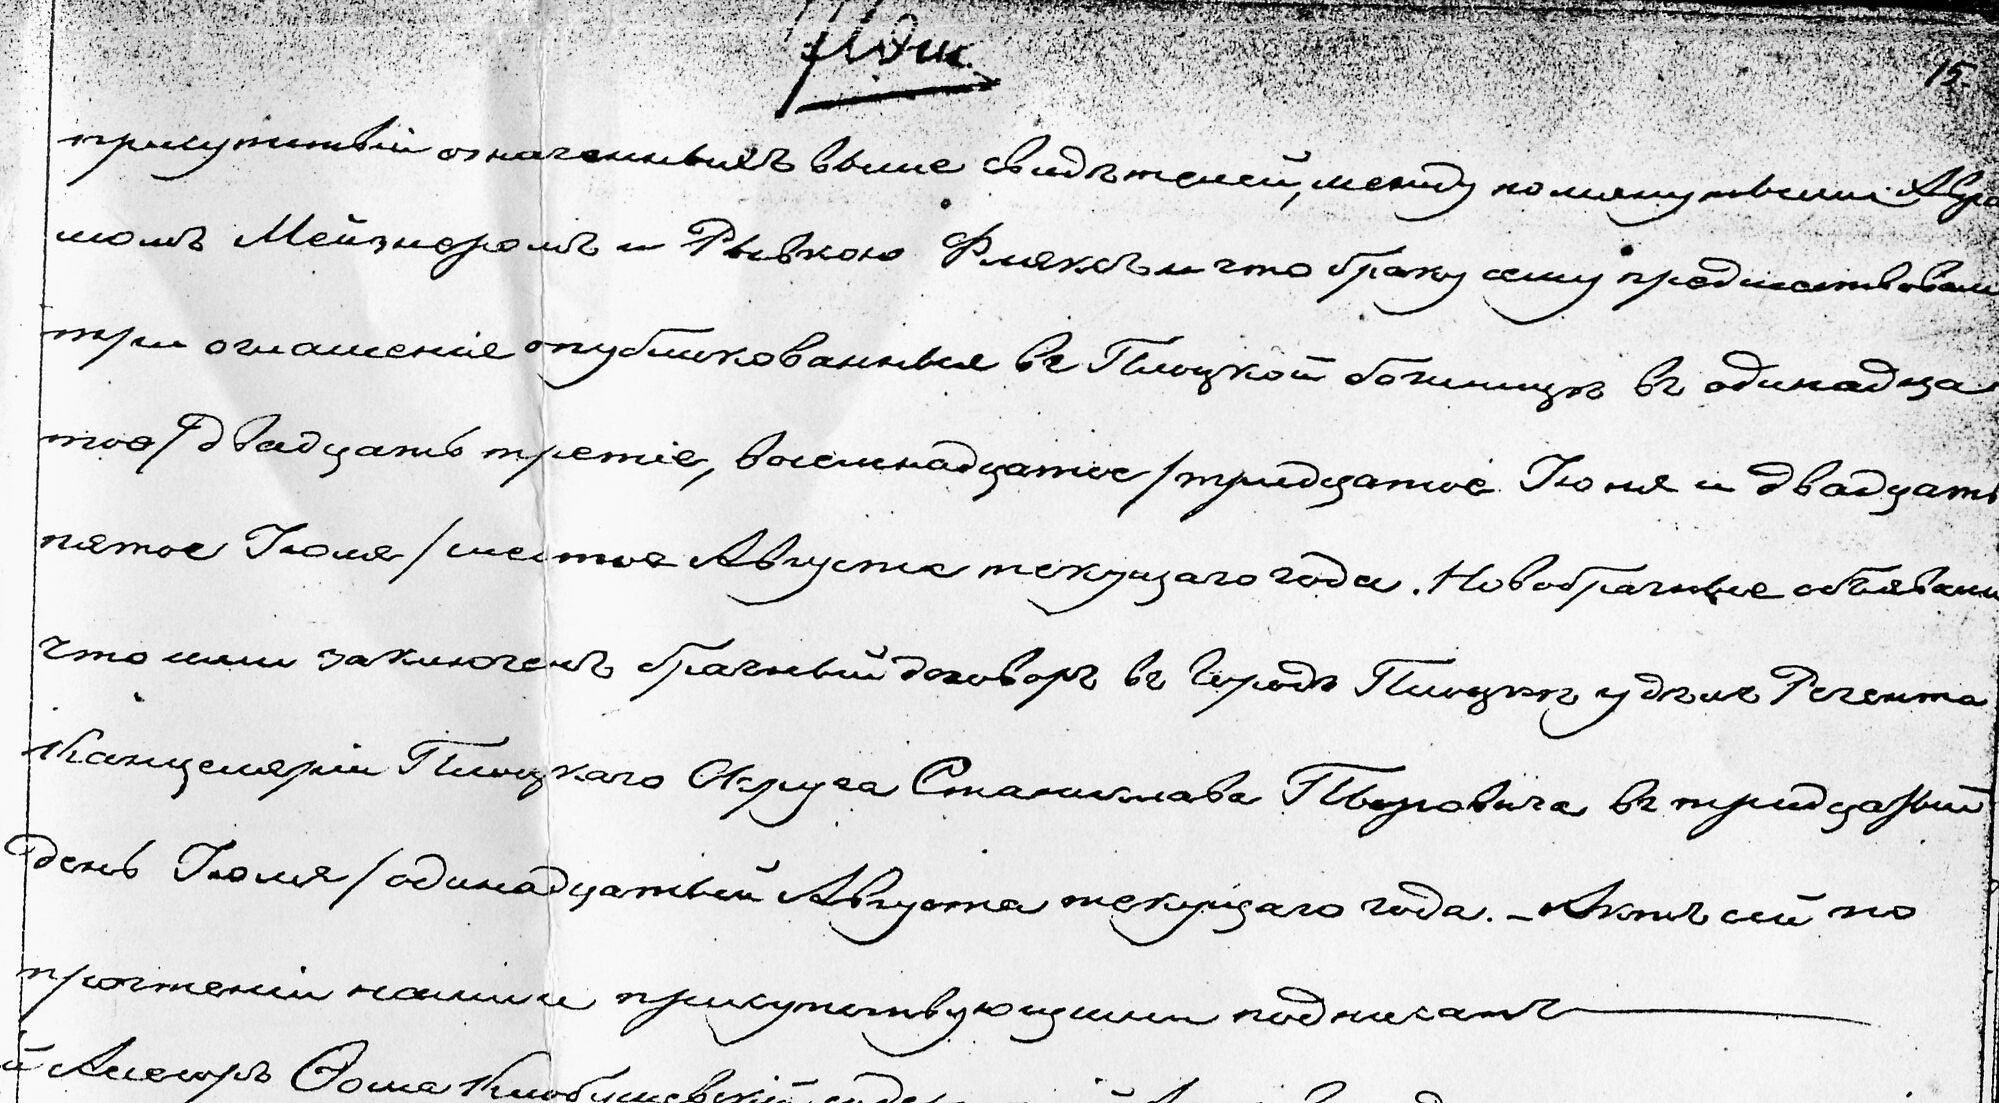 15.
присутствіи означенныхъ выше свидѣтелей, между помянутыми Авра
момъ Мейзнеромъ и Рывкою Фляксъ и что браку сему предшествовали
три оглашенія опубликованныя въ Плоцкой божницѣ въ одинадца
тое/двадцать третіе, восемнадцатое/тридцатое Іюня и двадцать
пятое Іюля/шестое Августа текущаго года. Новобрачные объявили
что ими заключенъ брачный договоръ въ Городѣ Плоцкѣ у дѣле Регента
Канцеляріи Плоцкаго Округа Станислава въ тридцатый
день Іюля/одинадцатый Августа текущаго года. – Актъ сей по
прочтеніи нами и присутствующими подписанъ
Ѳома